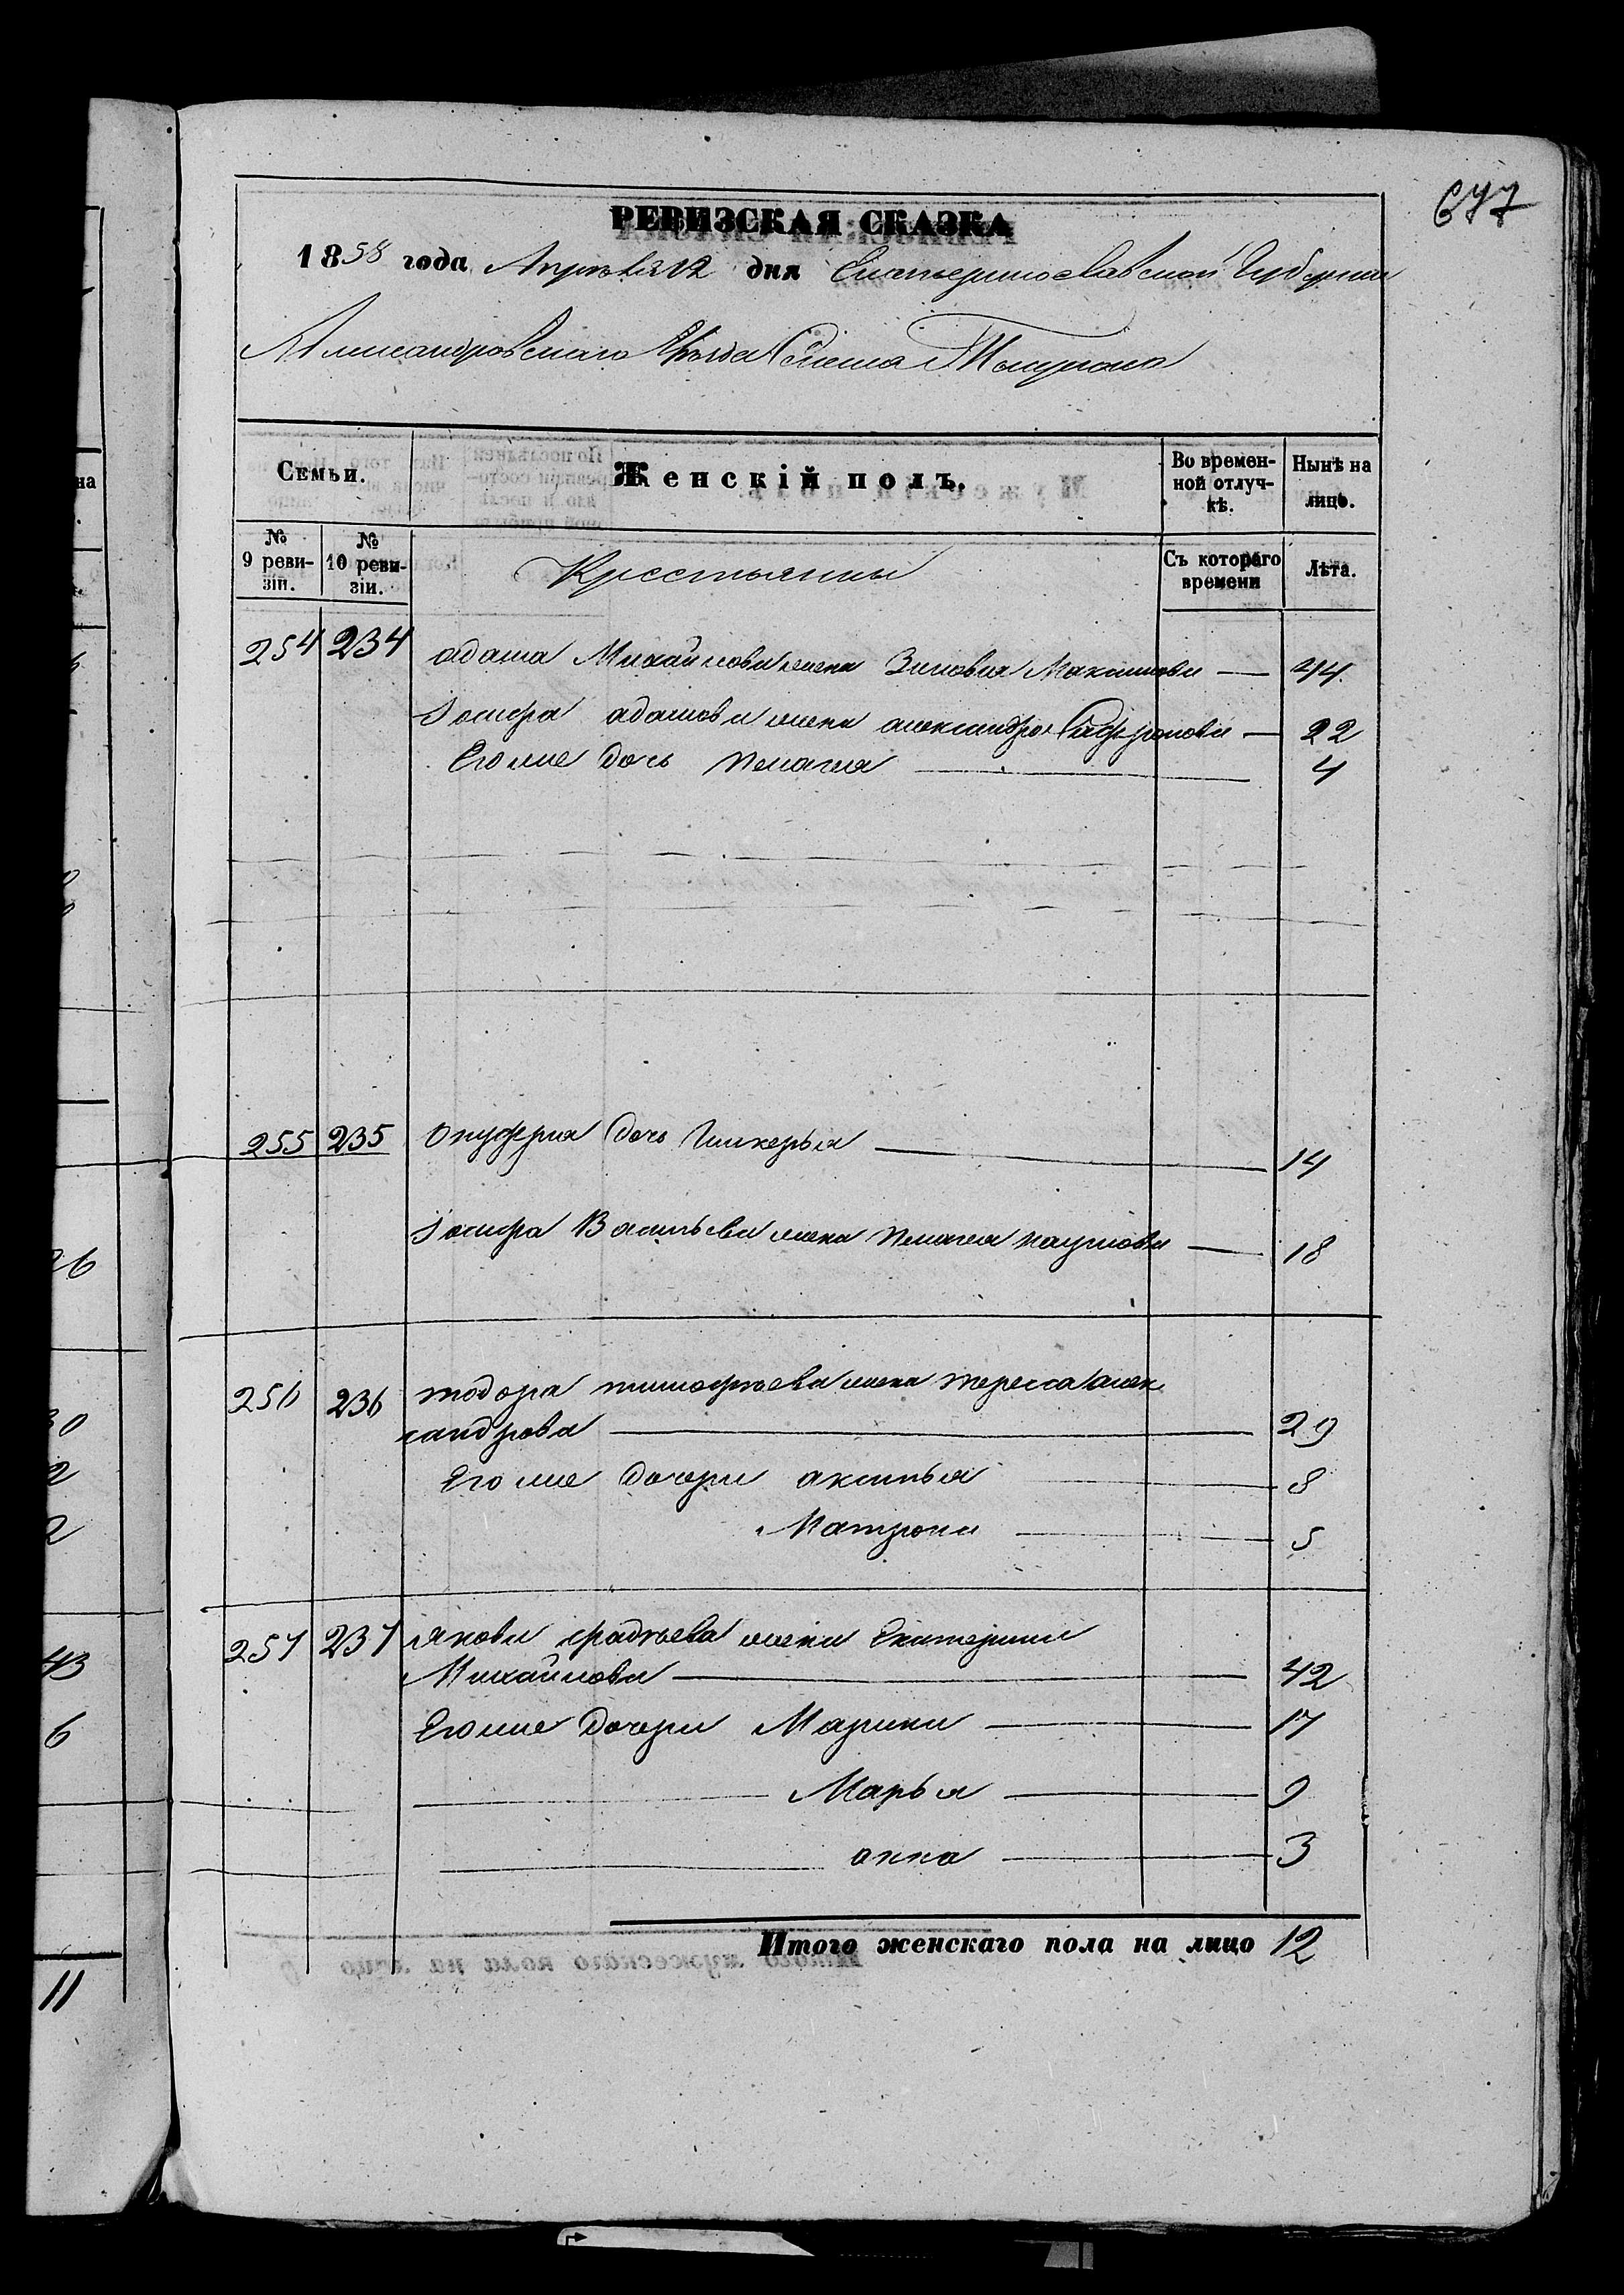 677
РЕВИЗСКАЯ СКАЗКА
1858 года Апреля 12 дня Екатеринославской Губернии
Александровскаго Уезда Села
Семьи. Женскій полъ. Во времен-ной отлуч-кѣ. Нынѣ на лицо.
№ 9 реви-зіи. № 10 реви-зіи. Крестьянны Съ котораго времени Лѣта.
254 234 адама Михайлова жена Зиновия Максимова — 44
Іосифа адамова жена александра Сафронова — 22
Его же дочь пелагея — 4
255 235 Онуфрия дочь Гликерья — 14
Іосифа Васильева жена пелагея наумова — 18
256 236 тодора тимофѣева жена тересса алек
сандрова — 29
Его же дочери аксинья — 8
Матрона — 5
257 237 якова фадѣева жена Екатерина
Михайлова — 42
Его же дочери Марина — 17
— Марья — 9
— анна — 3
Итого женскаго пола на лицо 12
на
26
30
2
2
43
6
11